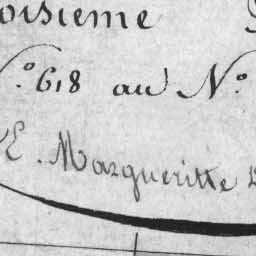 oisieme
N.º 618 au N.º
E. Margueritte